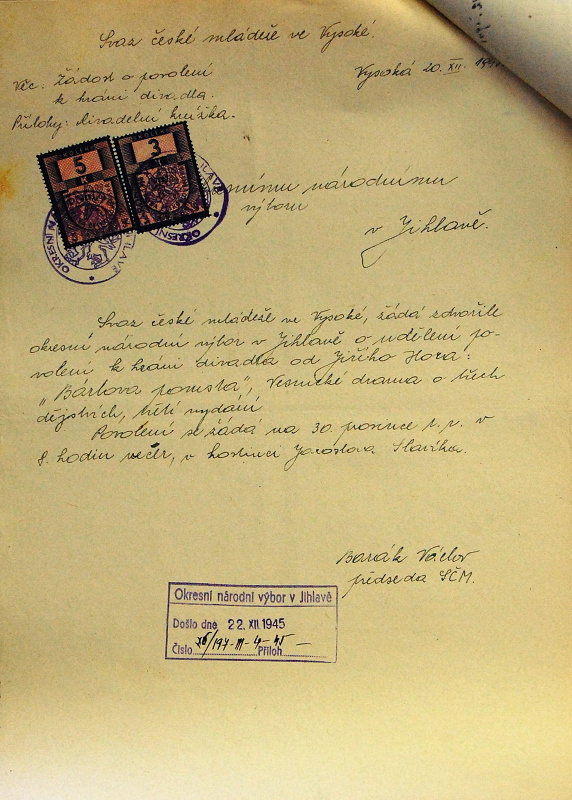 Svaz české mládeže ve Vysoké.
Věc: Žádost o povolení
k hraní divadla.
Přílohy: Divadelní knížka.
Vysoká 20. XII. 194
5
K
3
K
OKRESNÍ
JIHLAVĚ
OKRESNÍ
JIHLAVĚ
národnímu
výboru
v Jihlavě.
Svaz české mládeže ve Vysoké, žádá zdvořile
okresní národní výbor v Jihlavě o udělení po-
volení k hraní divadla od Jiřího Hova:
„Bártova pomsta", Vesnické drama o třech
dějstvích, třetí vydání.
Povolení se žádá na 30. prosince t. r. v
8. hodin večer, v hostinci Jaroslava Slavíka.
Barák Václav
předseda SČM.
Okresní národní výbor v Jihlavě
Došlo dne 22. XII. 1945
Číslo Příloh